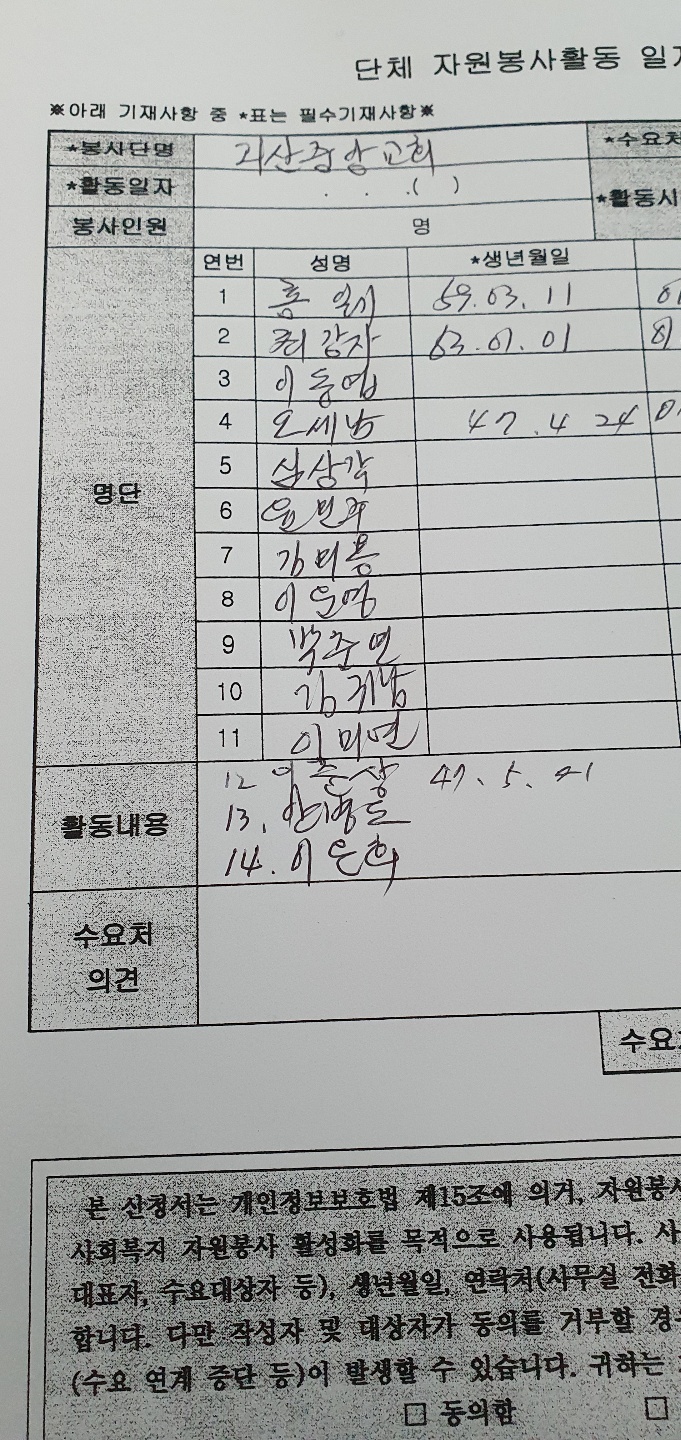 단체 자원봉사활동 일지
※아래 기재사항 중 *표는 필수기재사항※
*봉사단명 괴산중앙교회 *수요처
*활동일자 . . .( ) *활동시
봉사인원 명
연번 성명 *생년월일
명단
1 홍일시 69.03.11
2 최강자 63.01.01
3 이동엽
4 오세남 47.4 24
5 심상각
6 윤민주
7 김미용
8 이은영
9 박준면
10 김귀남
11 이미연
12 이준상 47.5.
활동내용 13.
14. 이은희
수요처
의견
수요
본 신청서는 개인정보보호법 제15조에 의거, 자원봉사
사회복지 자원봉사 활성화를 목적으로 사용됩니다. 사
대표자, 수요대상자 등), 생년월일, 연락처(사무실 전화
합니다. 다만 작성자 및 대상자가 동의를 거부할 경우
(수요 연계 중단 등)이 발생할 수 있습니다. 귀하는
□ 동의함 □